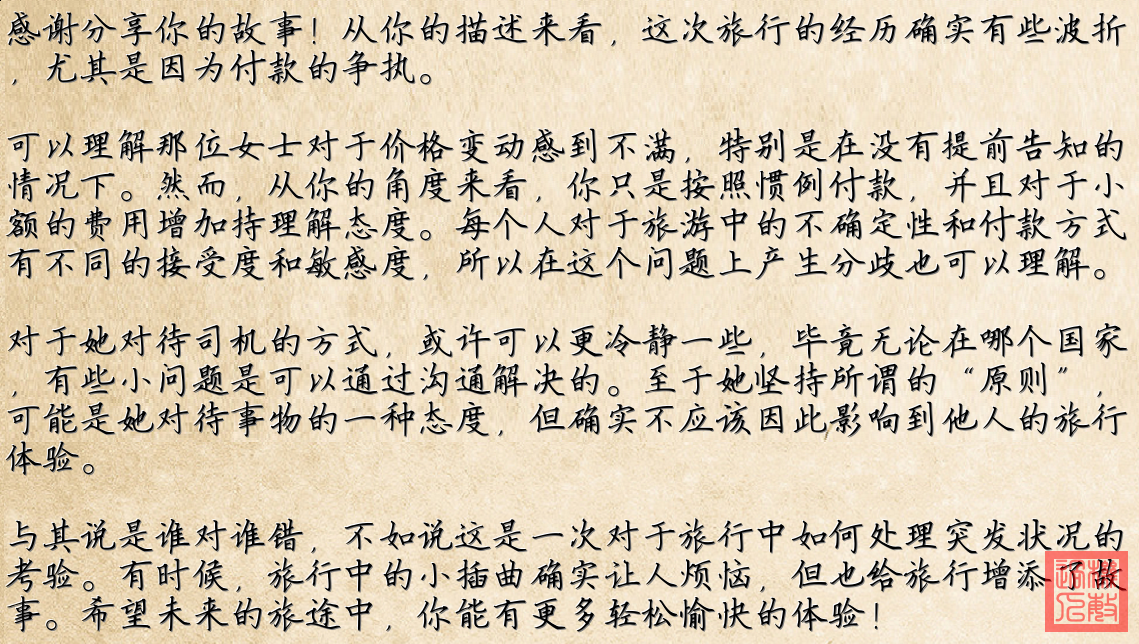 感谢分享你的故事！从你的描述来看，这次旅行的经历确实有些波折
，尤其是因为付款的争执。
可以理解那位女士对于价格变动感到不满，特别是在没有提前告知的
情况下。然而，从你的角度来看，你只是按照惯例付款，并且对于小
额的费用增加持理解态度。每个人对于旅游中的不确定性和付款方式
有不同的接受度和敏感度，所以在这个问题上产生分歧也可以理解。
对于她对待司机的方式，或许可以更冷静一些，毕竟无论在哪个国家
，有些小问题是可以通过沟通解决的。至于她坚持所谓的“原则”，
可能是她对待事物的一种态度，但确实不应该因此影响到他人的旅行
体验。
与其说是谁对谁错，不如说这是一次对于旅行中如何处理突发状况的
考验。有时候，旅行中的小插曲确实让人烦恼，但也给旅行增添了故
事。希望未来的旅途中，你能有更多轻松愉快的体验！